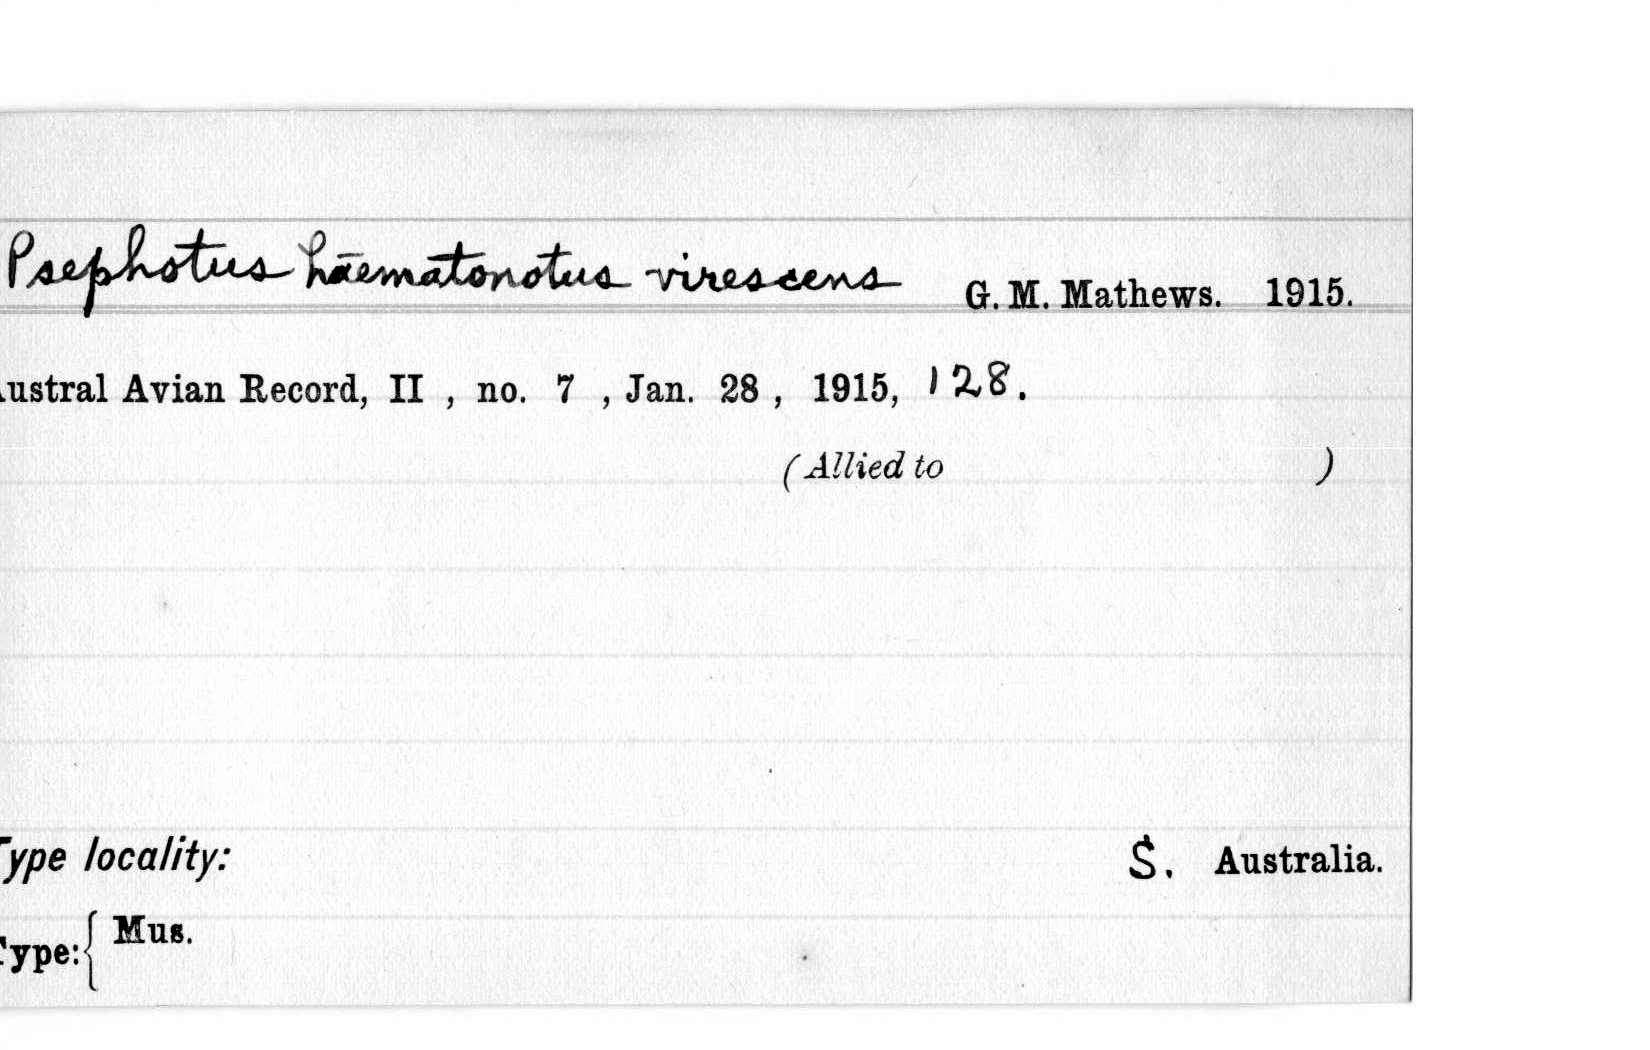 Psephotus haematonotus virescens G. M. Mathews. 1915.
ustral Avian Record, II , no. 7 , Jan. 28 , 1915, 128.
(Allied to )
Type locality: S. Australia.
Type: { Mus.